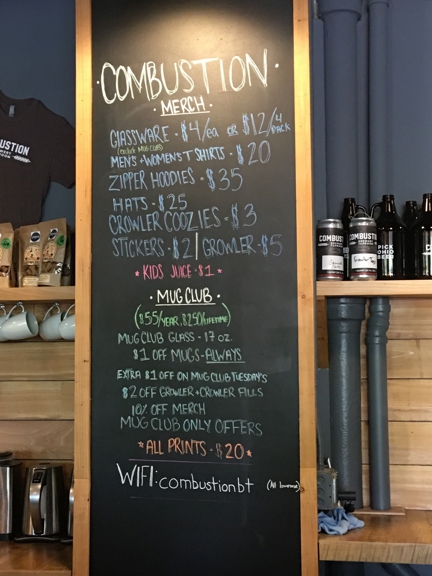 ·COMBUSTION·
·MERCH·
GLASSWARE · $4/ea OR $12/4 PACK
MEN'S + WOMEN'S T SHIRTS · $20
ZIPPER HOODIES · $35
HATS · $25
GROWLER COOZIES · $3
STICKERS · $2 | GROWLER · $5
* KIDS JUICE · $1 *
· MUG CLUB ·
($55/YEAR, $250/LIFETIME)
MUG CLUB GLASS - 17 OZ.
$1 OFF MUGS - ALWAYS
EXTRA $1 OFF ON MUG CLUB TUESDAY'S
$2 OFF GROWLER + CROWLER FILLS
10% OFF MERCH
MUG CLUB ONLY OFFERS
*ALL PRINTS - $20*
WIFI: combustionbt (All lowercase)
BUSTION
COMBUSTION